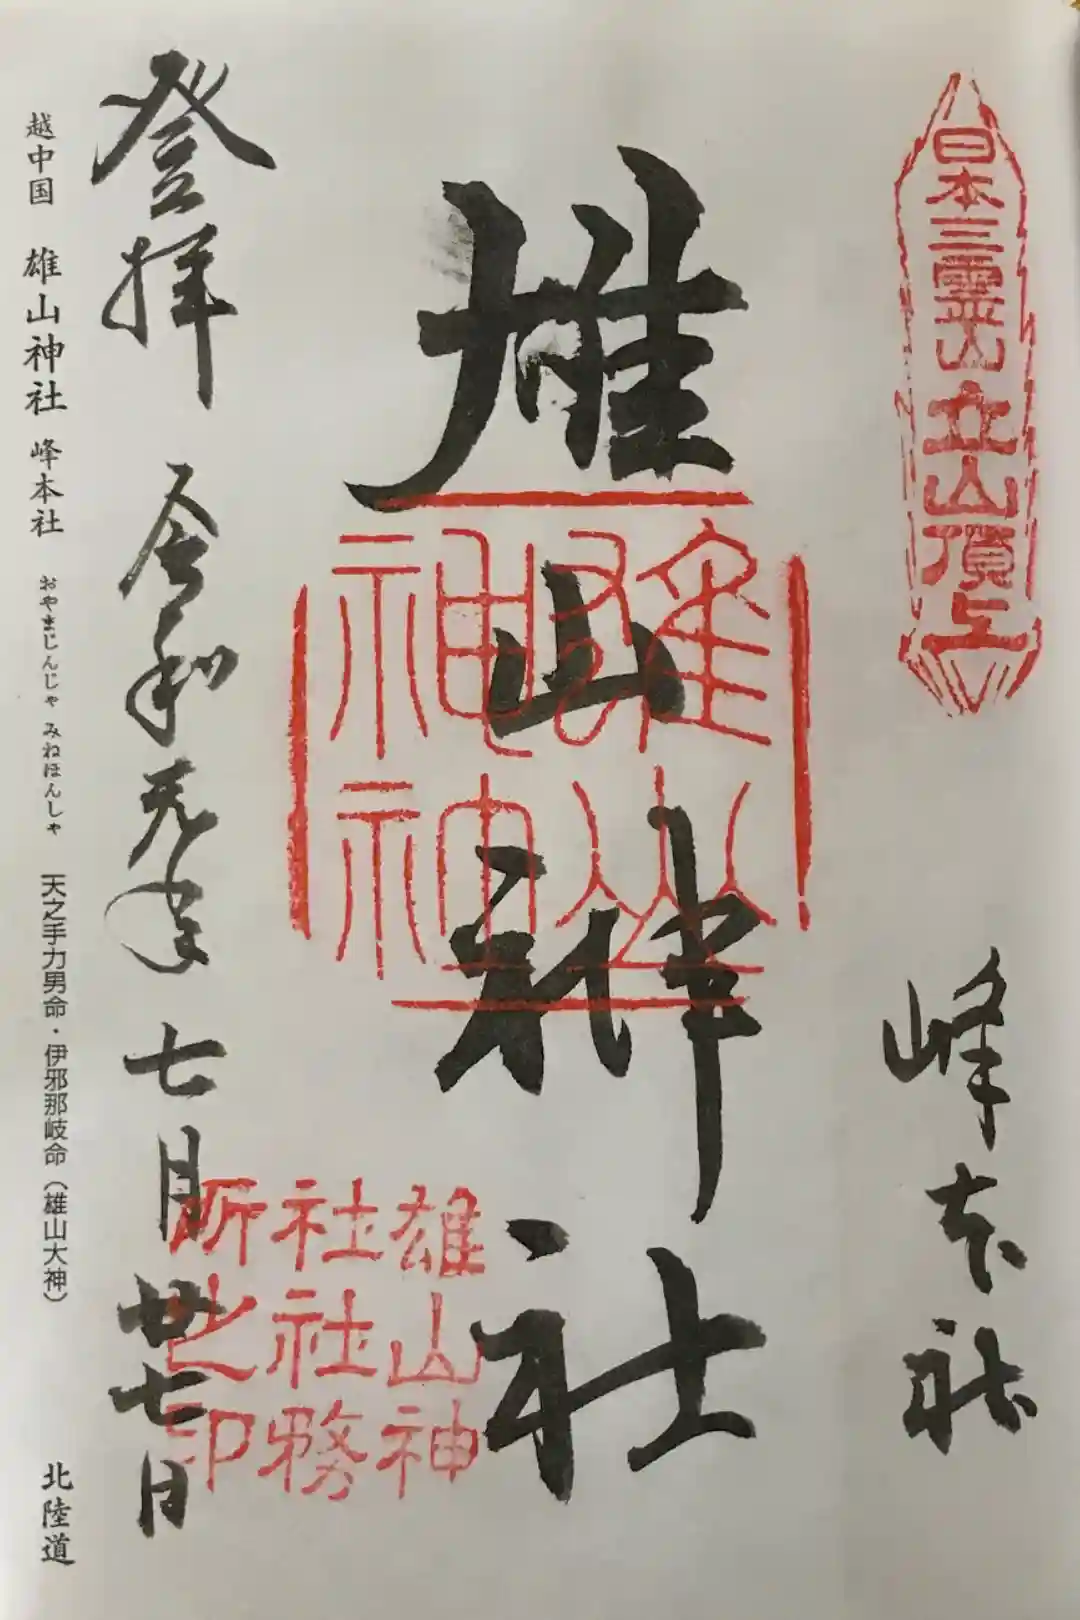 日本三霊山立山頂上
峰本社
雄山神社
雄山神
社社務
所之印
登拝 令和元年七月廿七日
越中国 雄山神社 峰本社 おやまじんじゃ みねほんしゃ 天之手力男命・伊邪那岐命（雄山大神） 北陸道